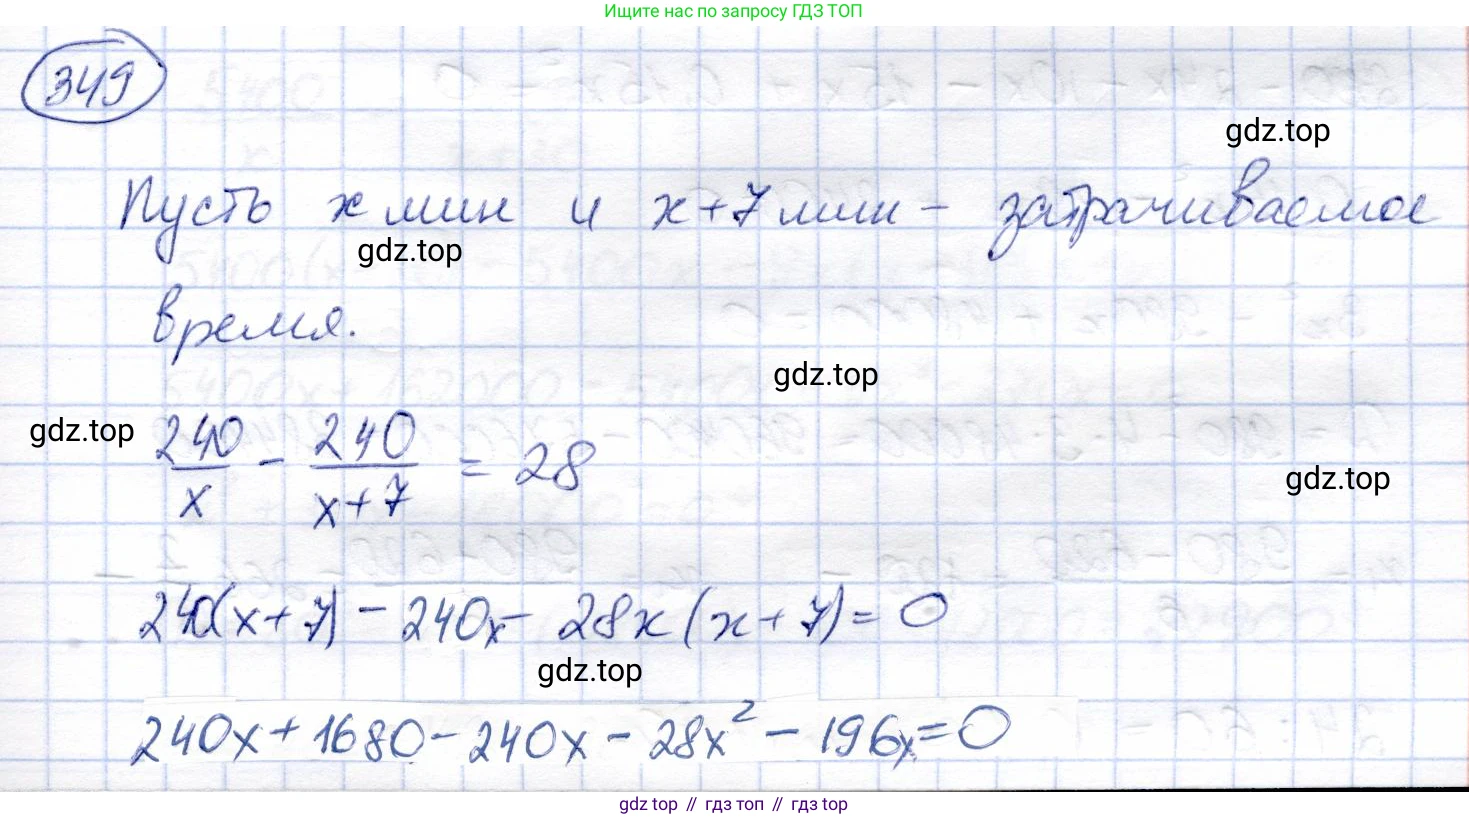 Ищите нас по запросу ГДЗ ТОП
349
gdz.top
Пусть x мин и x+7 мин – затрачиваемое
gdz.top
время.
gdz.top
gdz.top
240/x - 240/(x+7) = 28
gdz.top
240(x+7) - 240x - 28x(x+7) = 0
gdz.top
240x + 1680 - 240x - 28x² - 196x = 0
gdz top // гдз топ // гдз top